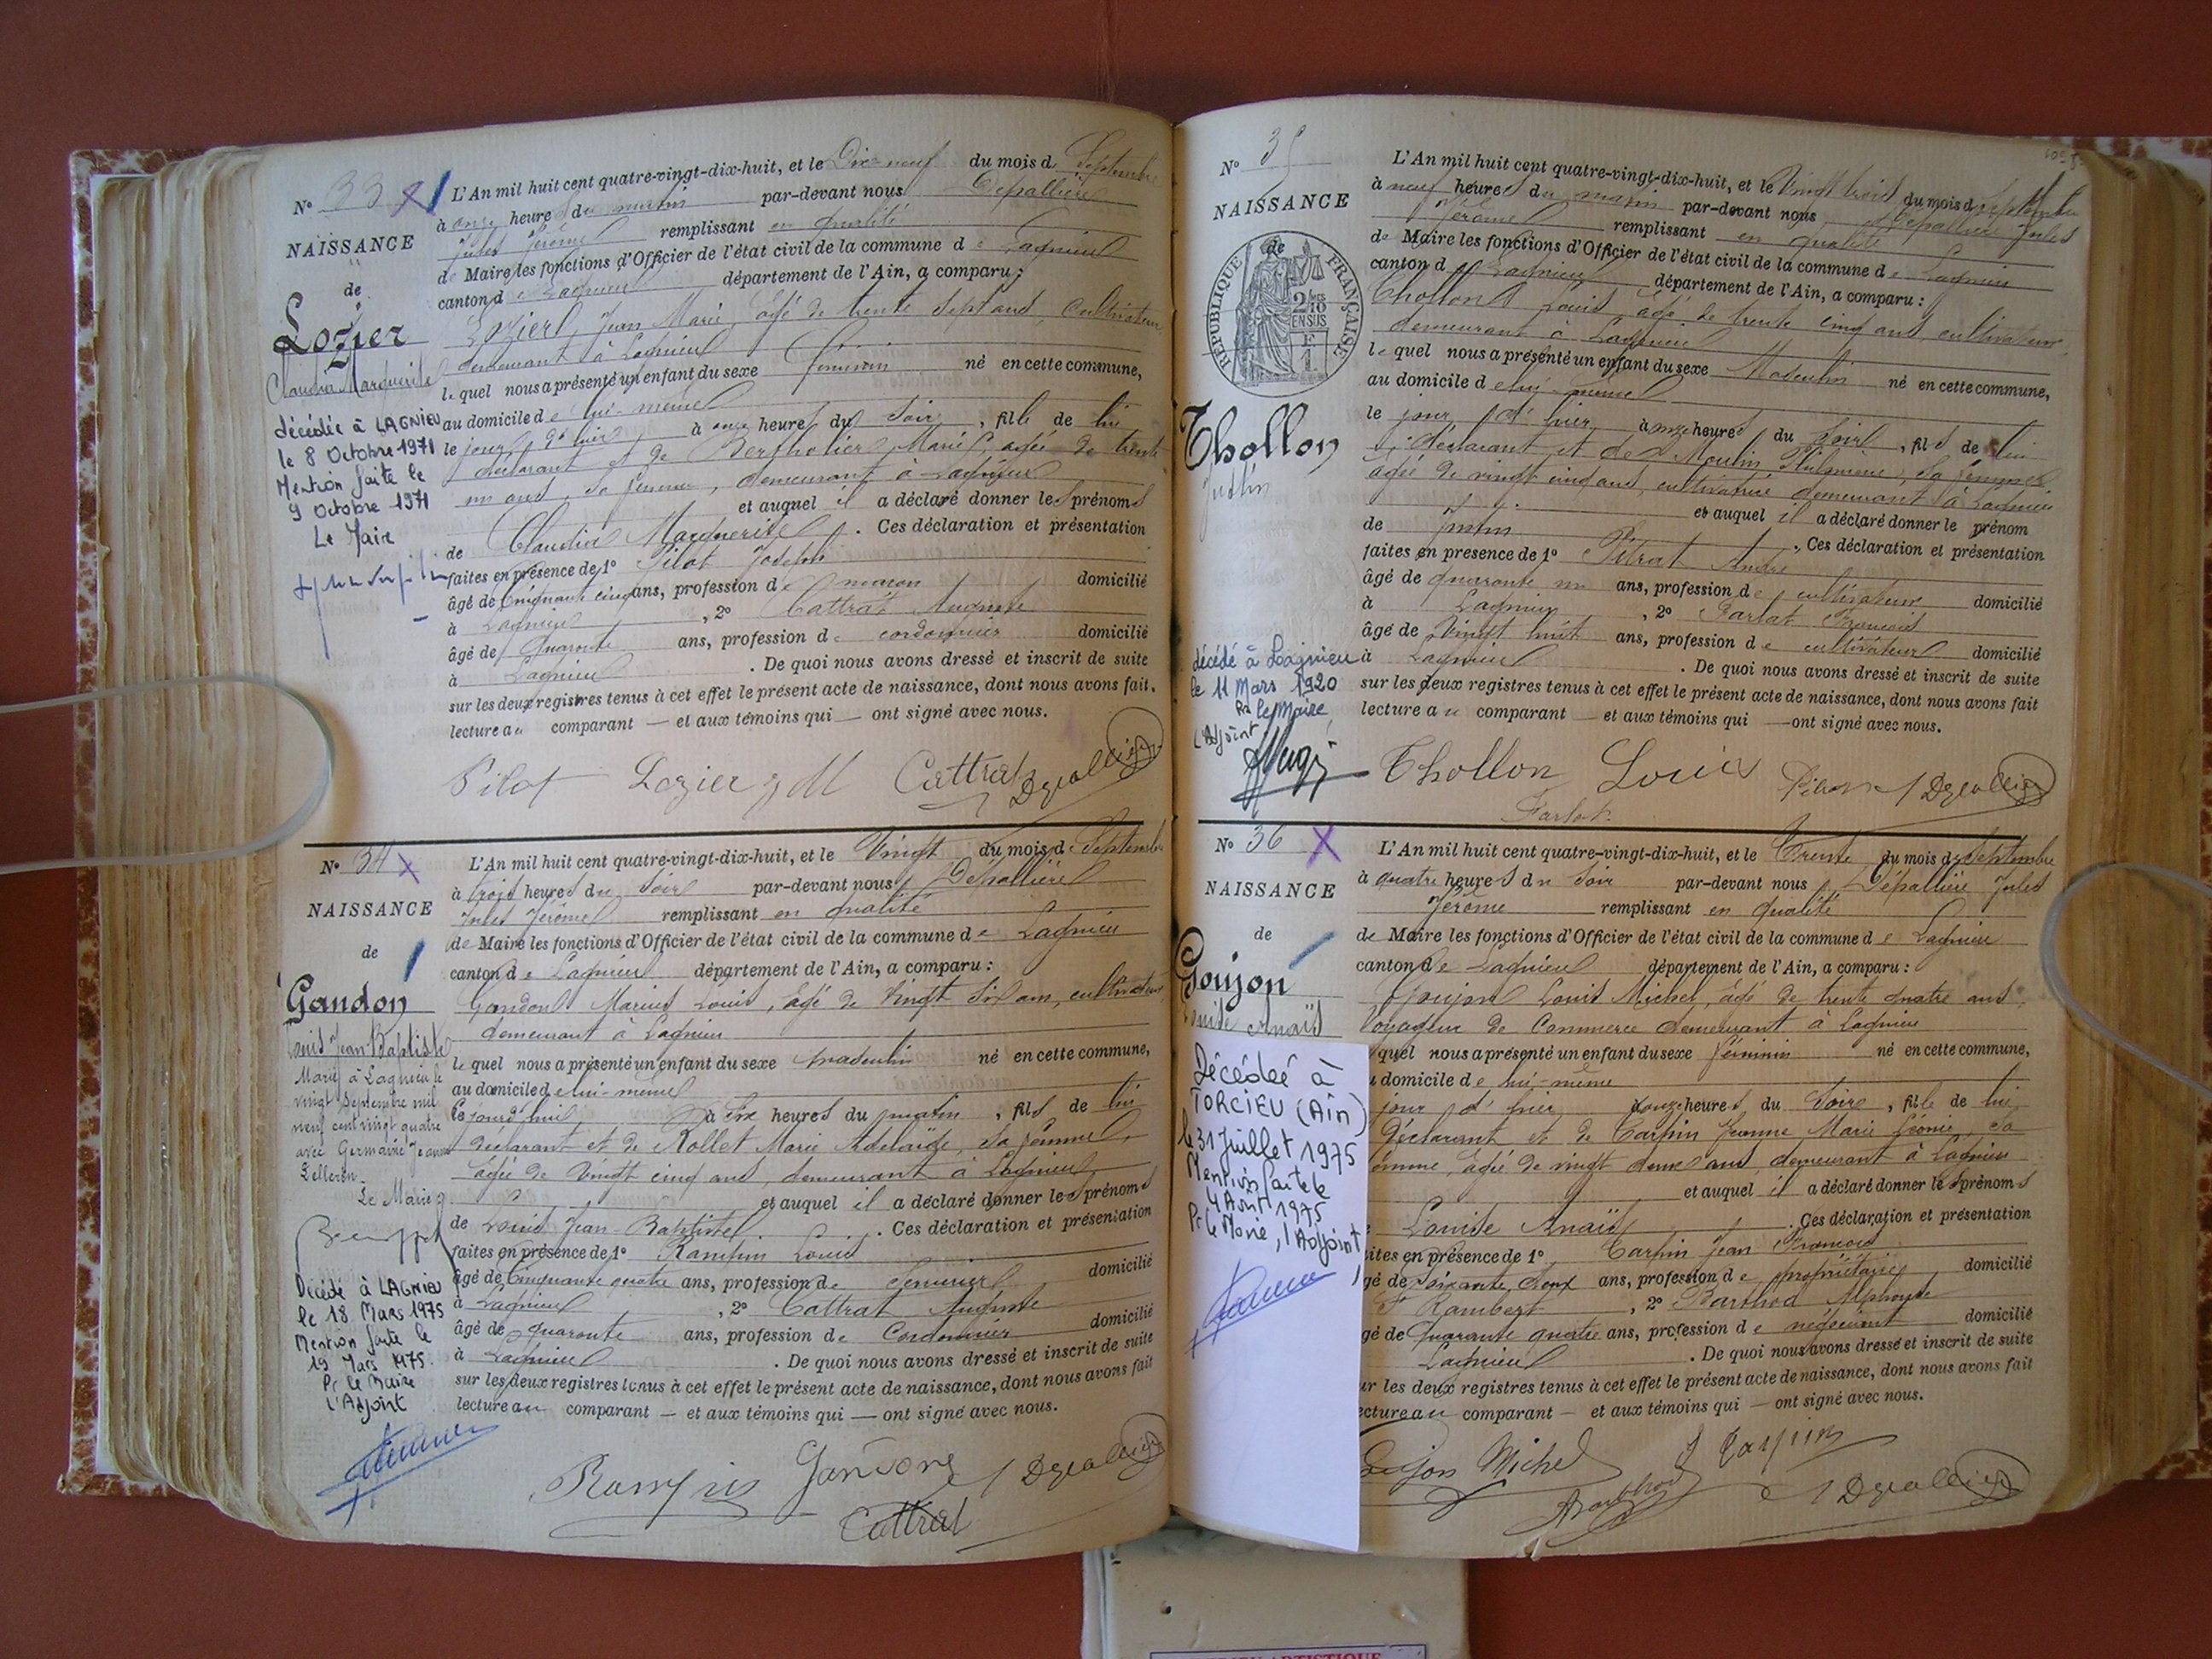 Nº 33
NAISSANCE
de
Lozier
Claudia Marguerite
décédée à LAGNIEU
le 8 Octobre 1971
Mention faite le
9 Octobre 1971
Le Maire
L'An mil huit cent quatre-vingt-dix-huit, et le Dix neuf du mois de Septembre
à onze heures du matin par-devant nous Dépallière
Jules Jérôme remplissant en qualité
de Maire les fonctions d'Officier de l'état civil de la commune de Lagnieu
canton de Lagnieu département de l'Ain, a comparu :
Lozier Jean Marie, âgé de trente sept ans, cultivateur
demeurant à Lagnieu
lequel nous a présenté un enfant du sexe féminin né en cette commune,
au domicile de lui-même
le jour d'hier à onze heures du soir, fille de lui
déclarant et de Bertholier Marie, agée de trente
un ans, sa femme, demeurant à Lagnieu
et auquel il a déclaré donner les prénoms
de Claudia Marguerite. Ces déclaration et présentation
faites en présence de 1º Pilot Joseph
âgé de Cinquante cinq ans, profession de maçon domicilié
à Lagnieu, 2º Cattrat Auguste
âgé de quarante ans, profession de cordonnier domicilié
à Lagnieu. De quoi nous avons dressé et inscrit de suite
sur les deux registres tenus à cet effet le présent acte de naissance, dont nous avons fait
lecture au comparant — et aux témoins qui — ont signé avec nous.
Pilot Lozier J M Cattrat Dépallière
Nº 34
NAISSANCE
de
Gandon
Louis Jean-Baptiste
Marié à Lagnieu le
vingt Septembre mil
neuf cent vingt quatre
avec Germaine Jeanne
Pelleron
Le Maire
Décédé à LAGNIEU
le 18 Mars 1975
Mention faite le
19 Mars 1975.
Pr le Maire
l'Adjoint
L'An mil huit cent quatre-vingt-dix-huit, et le Vingt du mois de Septembre
à trois heures du soir par-devant nous Dépallière
Jules Jérôme remplissant en qualité
de Maire les fonctions d'Officier de l'état civil de la commune de Lagnieu
canton de Lagnieu département de l'Ain, a comparu :
Gandon Marius Louis, âgé de vingt six ans, cultivateur
demeurant à Lagnieu
lequel nous a présenté un enfant du sexe masculin né en cette commune,
au domicile de lui-même
ce jourd'hui à six heures du matin, fils de lui
déclarant et de Rollet Marie Adelaïde, sa femme,
âgée de vingt cinq ans, demeurant à Lagnieu
et auquel il a déclaré donner les prénoms
de Louis Jean-Baptiste. Ces déclaration et présentation
faites en présence de 1º Rampin Louis
âgé de Cinquante quatre ans, profession de serrurier domicilié
à Lagnieu, 2º Cattrat Auguste
âgé de quarante ans, profession de Cordonnier domicilié
à Lagnieu. De quoi nous avons dressé et inscrit de suite
sur les deux registres tenus à cet effet le présent acte de naissance, dont nous avons fait
lecture au comparant — et aux témoins qui — ont signé avec nous.
Rampin Gandon Dépallière
Cattrat
Nº 35
NAISSANCE
de
RÉPUBLIQUE FRANÇAISE
2/10 EN SUS
Thollon
Justin
décédé à Lagnieu
le 11 Mars 1920
Pr le Maire,
L'Adjoint
L'An mil huit cent quatre-vingt-dix-huit, et le Vingt trois du mois de Septembre
à neuf heures du matin par-devant nous Dépallière Jules
Jérôme remplissant en qualité
de Maire les fonctions d'Officier de l'état civil de la commune de Lagnieu
canton de Lagnieu département de l'Ain, a comparu :
Thollon Louis, âgé de trente cinq ans, cultivateur
demeurant à Lagnieu
lequel nous a présenté un enfant du sexe Masculin né en cette commune,
au domicile de lui-même
le jour d'hier à onze heures du soir, fils de lui
déclarant et de Moulin Philomène, sa femme
âgée de vingt cinq ans, cultivatrice demeurant à Lagnieu
et auquel il a déclaré donner le prénom
de Justin. Ces déclaration et présentation
faites en présence de 1º André
âgé de quarante un ans, profession de cultivateur domicilié
à Lagnieu, 2º Parlat François
âgé de Vingt huit ans, profession de cultivateur domicilié
à Lagnieu. De quoi nous avons dressé et inscrit de suite
sur les deux registres tenus à cet effet le présent acte de naissance, dont nous avons fait
lecture au comparant — et aux témoins qui — ont signé avec nous.
Thollon Louis Dépallière
Parlat
Nº 36
NAISSANCE
de
Goujon
Louise Anaïs
Décédée à
TORCIEU (Ain)
le 31 Juillet 1975
Mention faite le
4 Août 1975
Pr le Maire, l'Adjoint
L'An mil huit cent quatre-vingt-dix-huit, et le Trente du mois de Septembre
à quatre heures du soir par-devant nous Dépallière Jules
Jérôme remplissant en qualité
de Maire les fonctions d'Officier de l'état civil de la commune de Lagnieu
canton de Lagnieu département de l'Ain, a comparu :
Goujon Louis Michel, âgé de trente quatre ans,
Voyageur de Commerce demeurant à Lagnieu
quel nous a présenté un enfant du sexe féminin né en cette commune,
domicile de lui-même
jour d'hier à onze heures du soir, fille de lui
déclarant et de Carpin Jeanne Marie Léonie, sa
femme, âgée de vingt deux ans, demeurant à Lagnieu
et auquel il a déclaré donner les prénoms
Louise Anaïs. Ces déclaration et présentation
ites en présence de 1º Carpin Jean François
gé de soixante deux ans, profession de propriétaire domicilié
St Rambert, 2º Barthod Alphonse
gé de quarante quatre ans, profession de négociant domicilié
Lagnieu. De quoi nous avons dressé et inscrit de suite
ur les deux registres tenus à cet effet le présent acte de naissance, dont nous avons fait
ecture au comparant — et aux témoins qui — ont signé avec nous.
Goujon Michel J Carpin
Barthod Dépallière